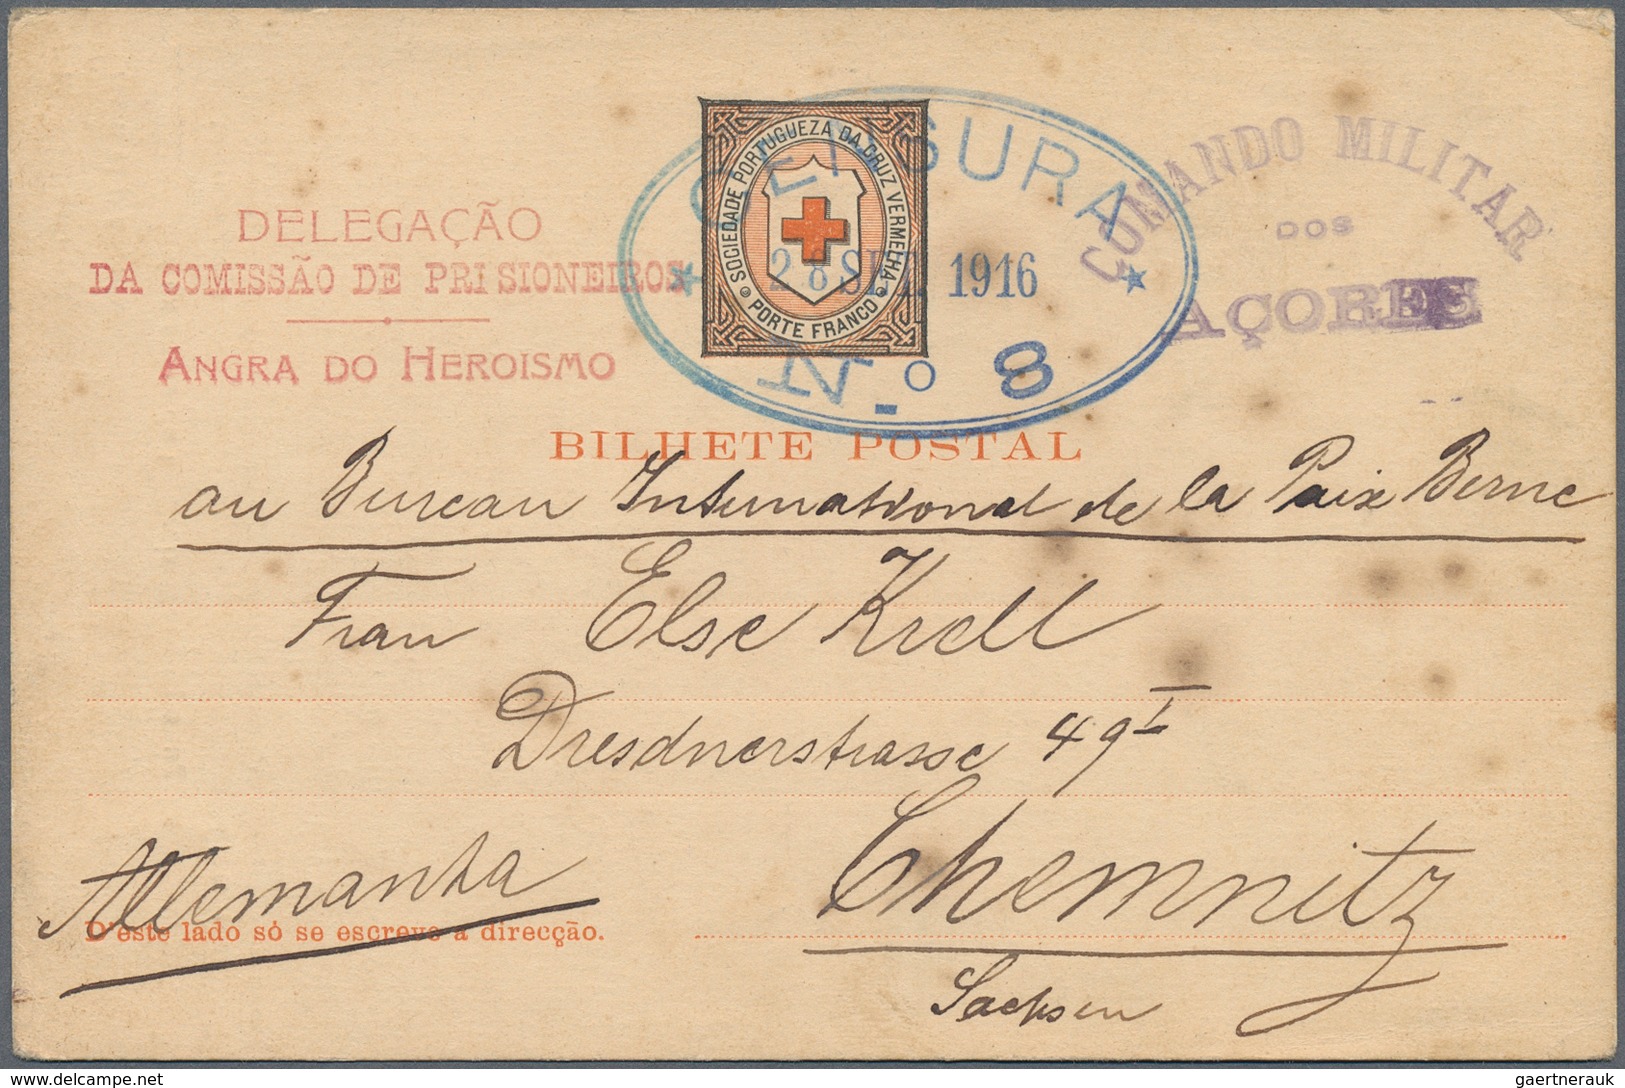 SOCIEDADE PORTUGUEZA DA CRUZ VERMELHA
PORTE FRANCO
CENSURA
28 SET. 1916
N.º 8
COMANDO MILITAR
DOS
AÇORES
DELEGAÇÃO
DA COMISSÃO DE PRISIONEIROS
ANGRA DO HEROISMO
BILHETE POSTAL
au Bureau International de la Paix Berne
Frau Else Krell
Dresdnerstrasse 49 I
Chemnitz
Allemanha
D'este lado só se escreve a direcção.
Sachsen
gaertnerauk @ delcampe.net